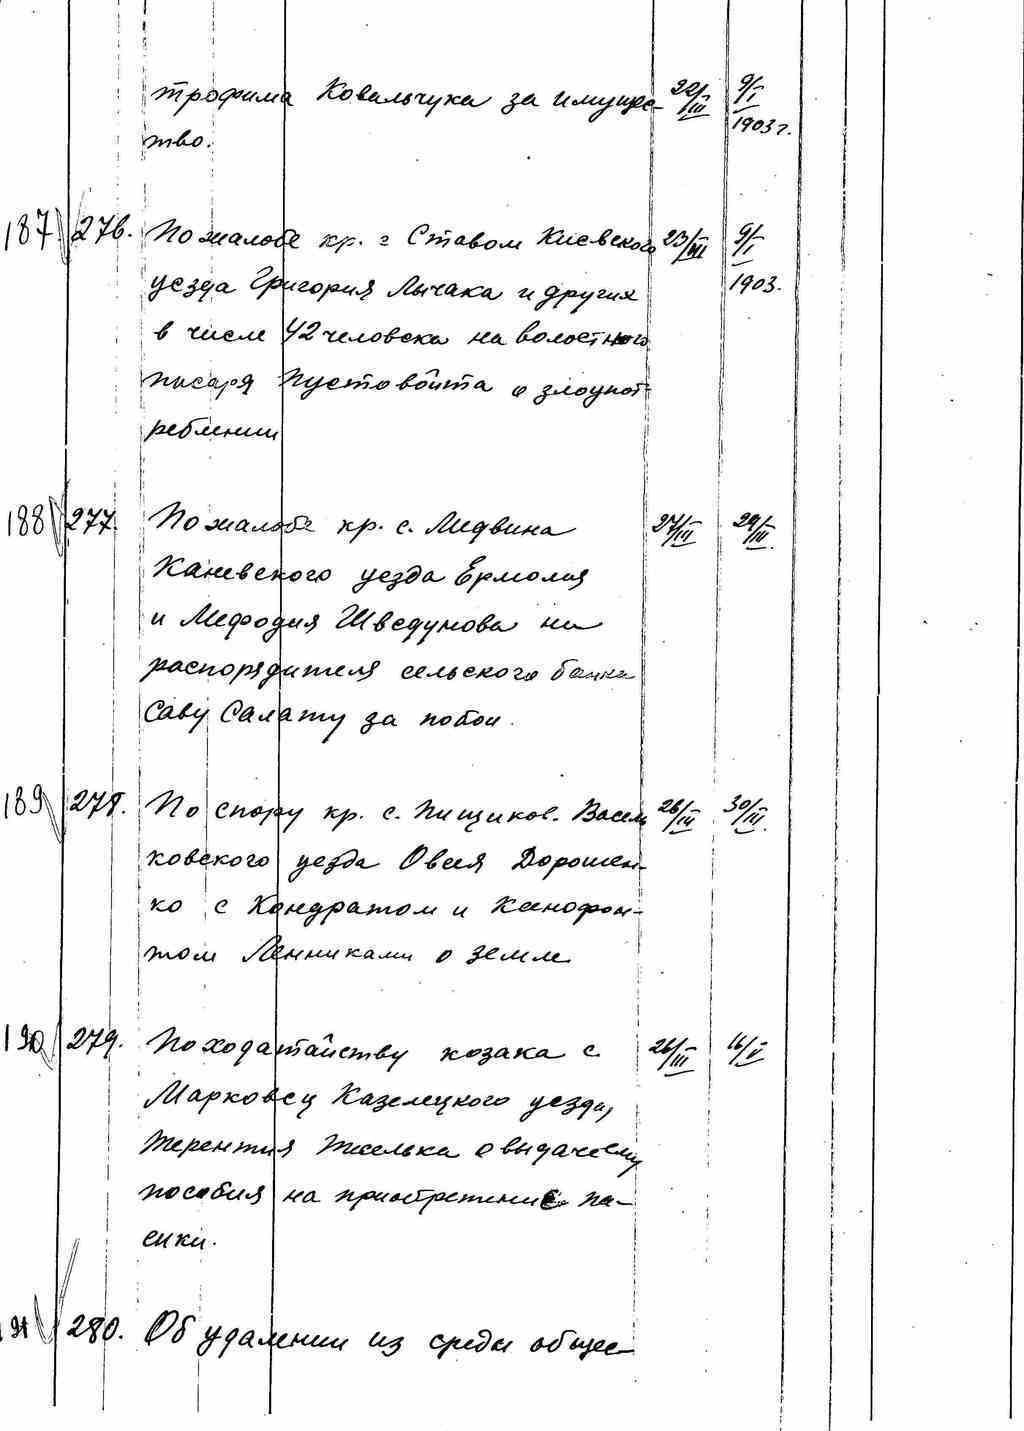 трофима Ковальчука за имущес- 22/III 9/I
1903 г.
тво.
187 276. По жалобе кр. г Ставом Киевского 23/III 9/I
уезда Григория Лычака и других 1903.
в числе 42 человека на волостного
писаря Пустовойта о злоупот-
реблении
188 277. По жалобе кр. с. Медвина 27/III 29/III.
Каневского уезда Ермолая
и Мефодия Шведунова на
распорядителя сельского банка
Саву Саламу за побои.
189 278. По спору кр. с. Пищиков. Василь 26/III 30/III.
ковского уезда Овсея Дорошен-
ко с Кондратом и Ксенофон-
том Ленниками о земле
190 279. По ходатайству козака с. 26/III 16/V
Марковец Казелецкого уезда,
Терентия о выдаче ему
пособия на приобретение па-
сики.
191 280. Об удалении из среды общес-